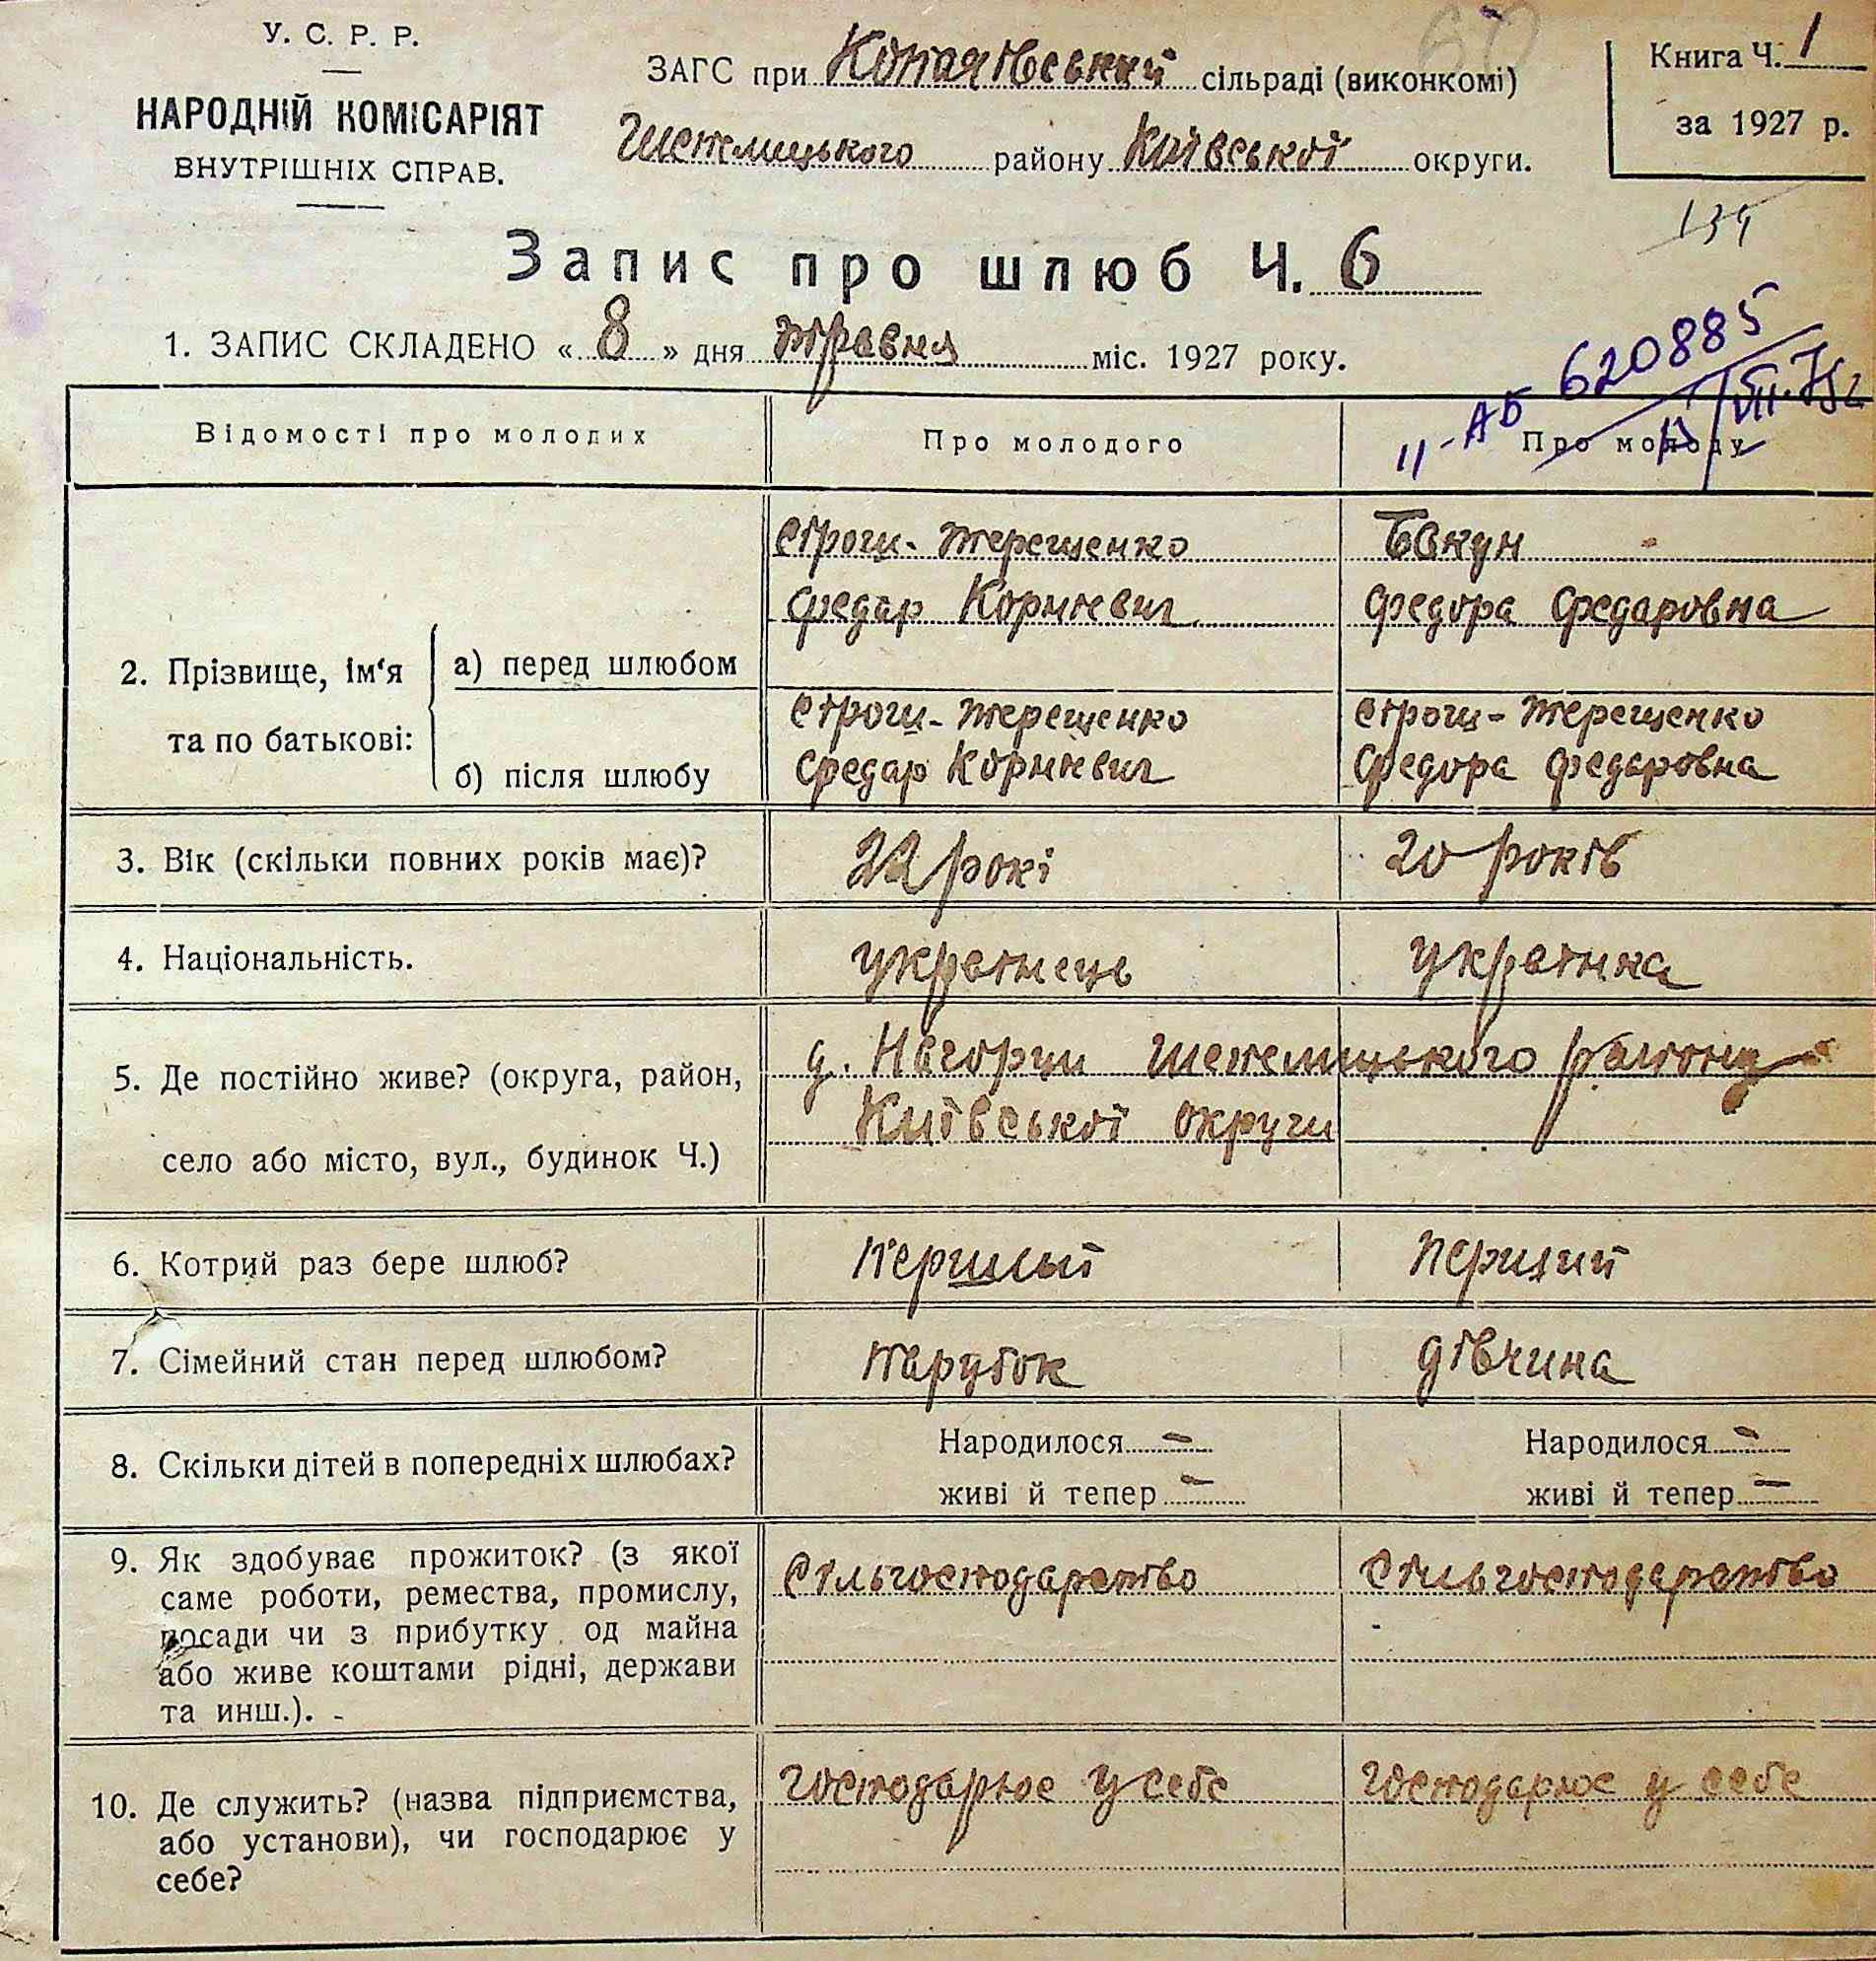 У. С. Р. Р.
НАРОДНІЙ КОМІСАРІЯТ
ВНУТРІШНІХ СПРАВ.
ЗАГС при Копачівський сільраді (виконкомі)
Шепелицького району Київської округи.
Книга Ч. 1
за 1927 р.
134
Запис про шлюб Ч. 6
1. ЗАПИС СКЛАДЕНО « 8 » дня травня міс. 1927 року.
II-АБ 620885
Відомості про молодих
Про молодого
Про молоду
2. Прізвище, ім‘я та по батькові:
а) перед шлюбом
Строги-Терещенко
Федар Корнієвич
Бакун
Федора Федаровна
б) після шлюбу
Строги-Терещенко
Федар Корнієвич
Строги-Терещенко
Федора Федаровна
3. Вік (скільки повних років має)?
22 рокі
20 років
4. Національність.
українець
українка
5. Де постійно живе? (округа, район,
село або місто, вул., будинок Ч.)
д. Нагорци Шепелицького району
Київської округи
6. Котрий раз бере шлюб?
Першый
Перший
7. Сімейний стан перед шлюбом?
парубок
дівчина
8. Скільки дітей в попередніх шлюбах?
Народилося –
живі й тепер –
Народилося –
живі й тепер –
9. Як здобуває прожиток? (з якої
саме роботи, ремества, промислу,
посади чи з прибутку од майна
або живе коштами рідні, держави
та инш.).
Сільгосподарство
Сільгосподарство
10. Де служить? (назва підприємства,
або установи), чи господарює у
себе?
Господарює у себе
Господарює у себе